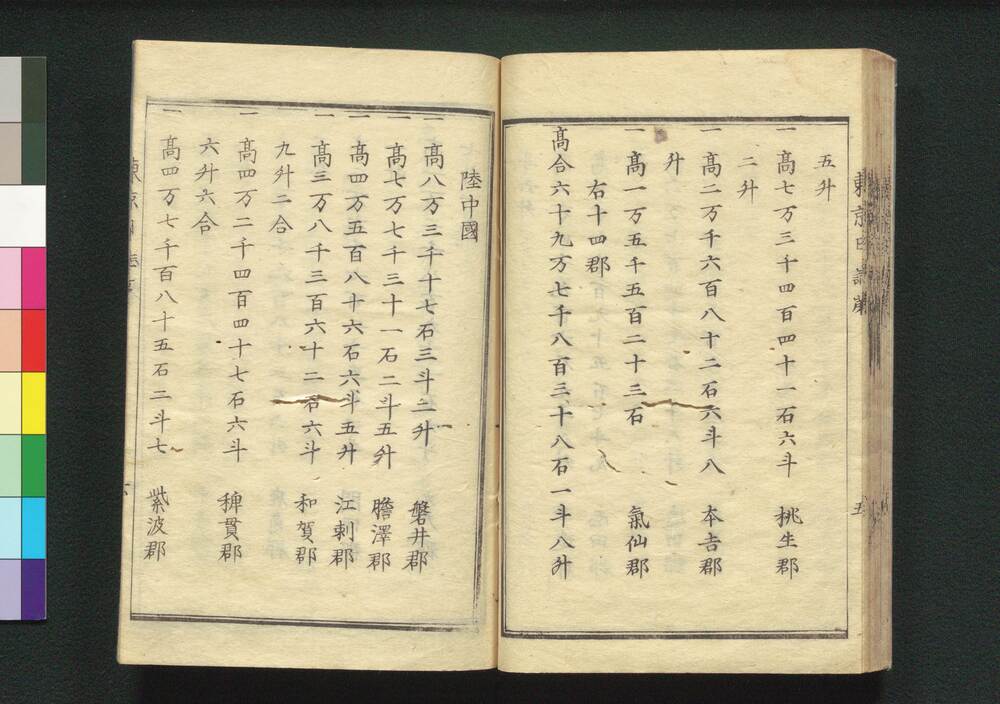 五升
一 高七万三千四百四十一石六斗 桃生郡
二升
一 高二万千六百八十二石六斗八 本吉郡
升
一 高一万五千五百二十三石 氣仙郡
右十四郡
高合六十九万七千八百三十八石一斗八升
五
陸中國
一 高八万三千十七石三斗二升 磐井郡
一 高七万七千三十一石二斗五升 膽澤郡
一 高四万五百八十六石六斗五升 江刺郡
一 高三万八千三百六十二石六斗 和賀郡
九升二合
一 高四万二千四百四十七石六斗 稗貫郡
六升六合
一 高四万七千百八十五石二斗七 紫波郡